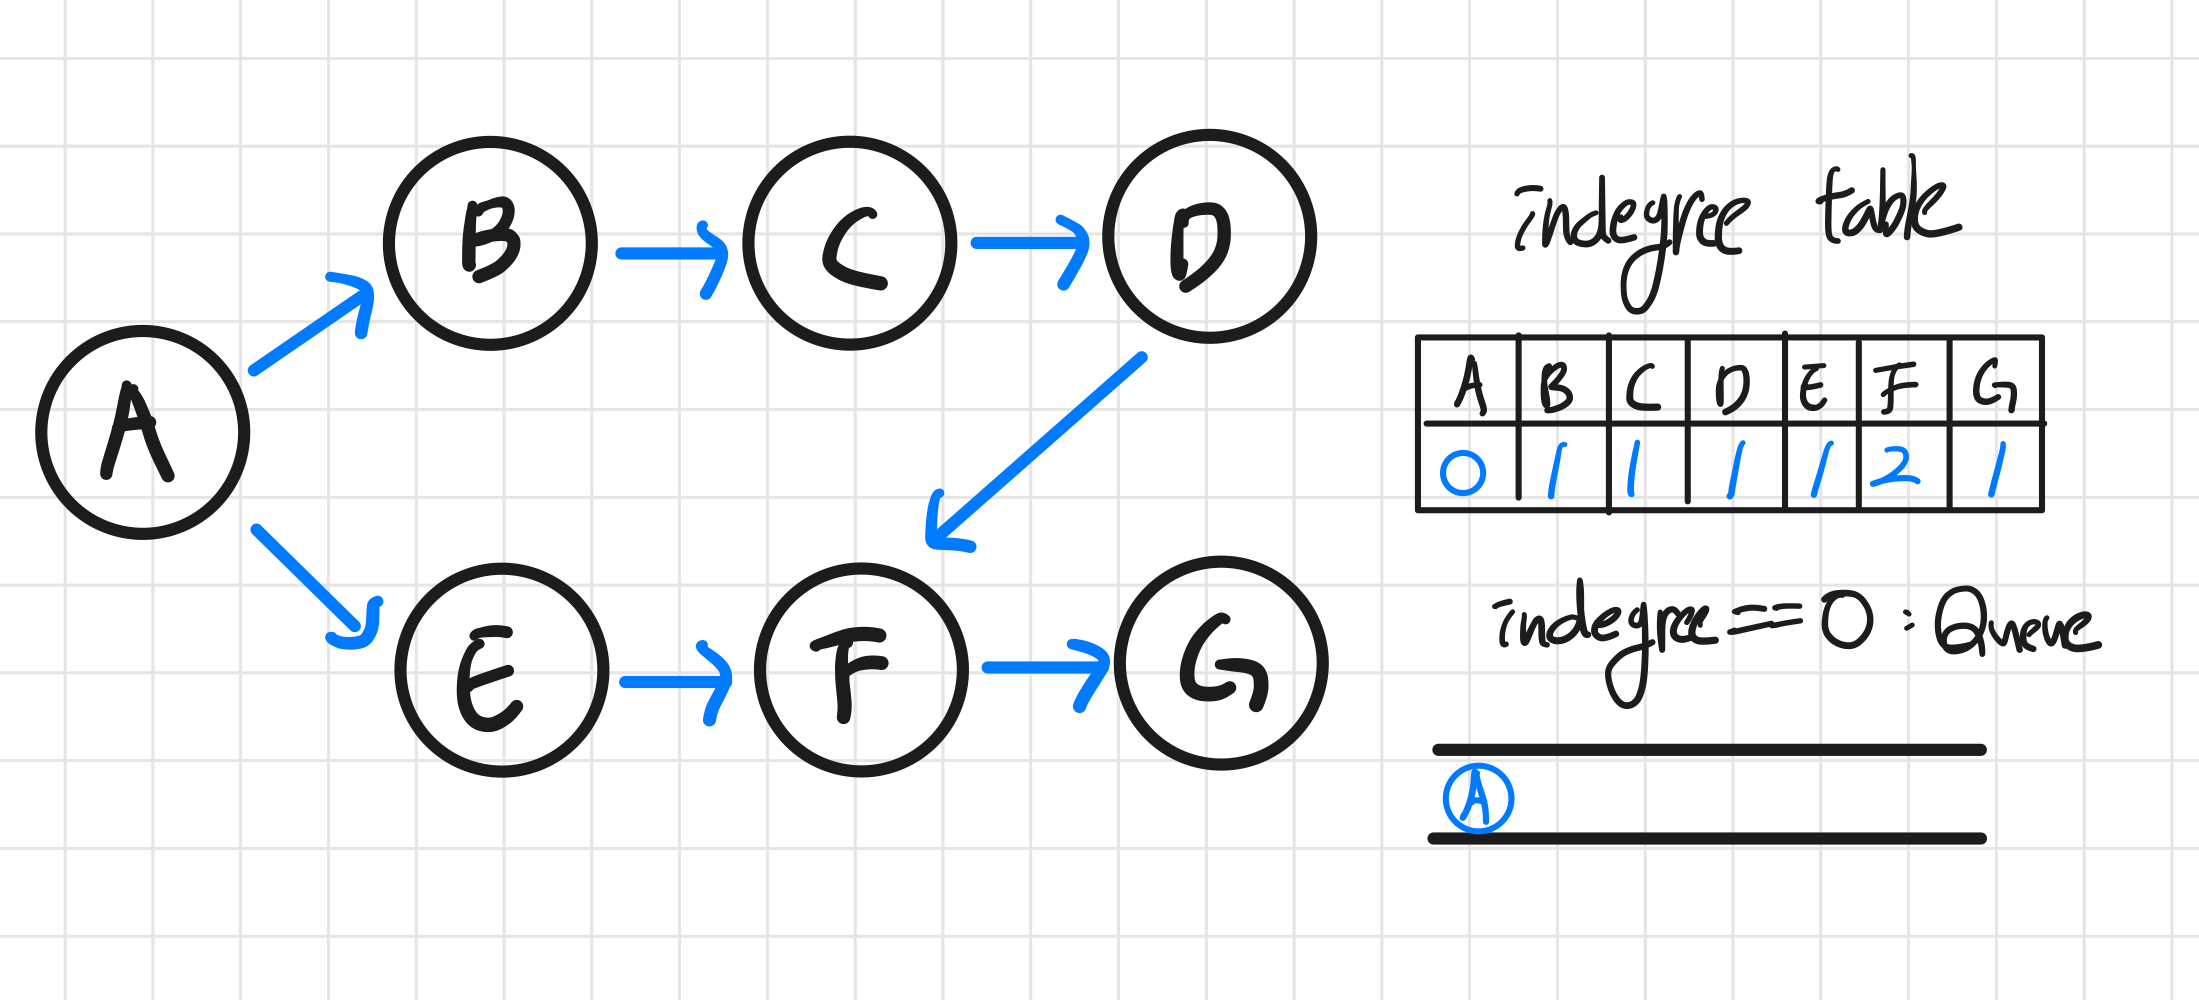 B C D
indegree table
A
A B C D E F G
0 1 1 1 1 2 1
E F G
indegree==0 : Queue
A